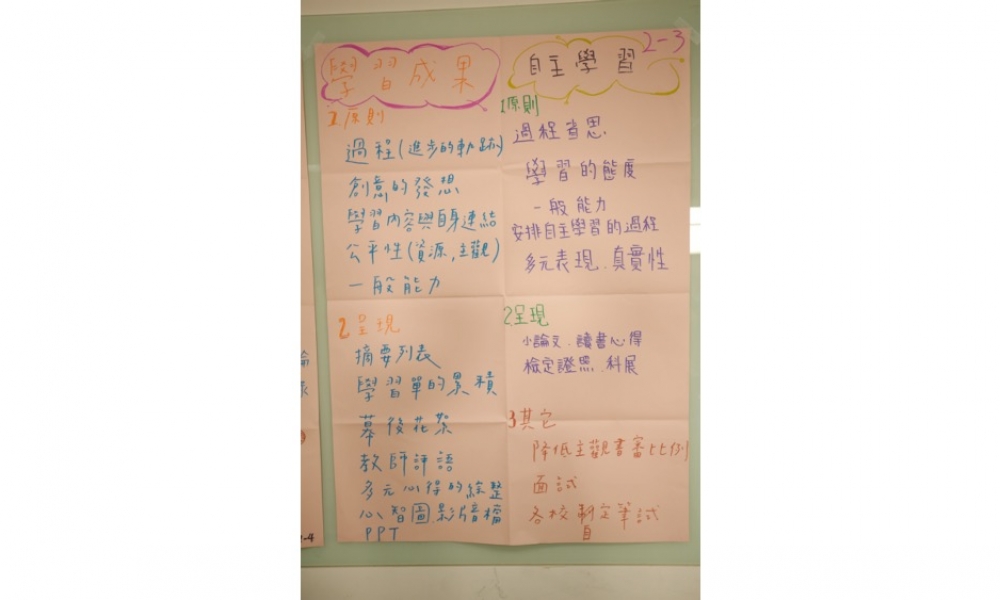 學習成果
1.原則
過程(進步的軌跡)
創意的發想
學習內容與自身連結
公平性(資源,主觀)
一般能力
2.呈現
摘要列表
學習單的累積
幕後花絮
教師評語
多元心得的綜整
心智圖.影片音檔
PPT
2-3
自主學習
1原則
過程省思
學習的態度
一般能力
安排自主學習的過程
多元表現.真實性
2.呈現
小論文.讀書心得
檢定證照.科展
3其它
降低主觀書審比例
面試
各校制定筆試
自
-4